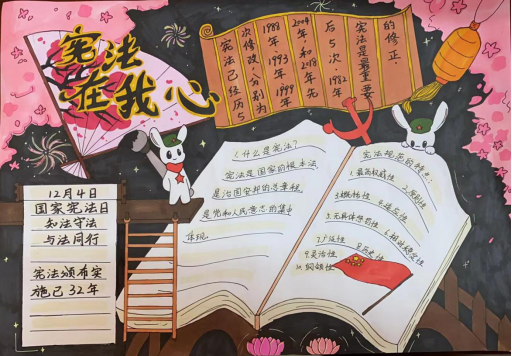 宪法
在我心
宪法已经历5
次修改,分别为
1988年、1993年、1999年
2004年和2018年先
后5次、1982年
宪法是最重要
的修正
12月4日
国家宪法日
知法守法
与法同行
宪法颁布实
施已32年
1.什么是宪法?
宪法是国家的根本法,
是治国安邦的总章程,
是党和人民意志的集中
体现
宪法规范的特点:
1.最高权威性 2.原则性
概括性
无具体惩罚性 6.相对稳定性
7.广泛性
9.灵活性
10.纲领性